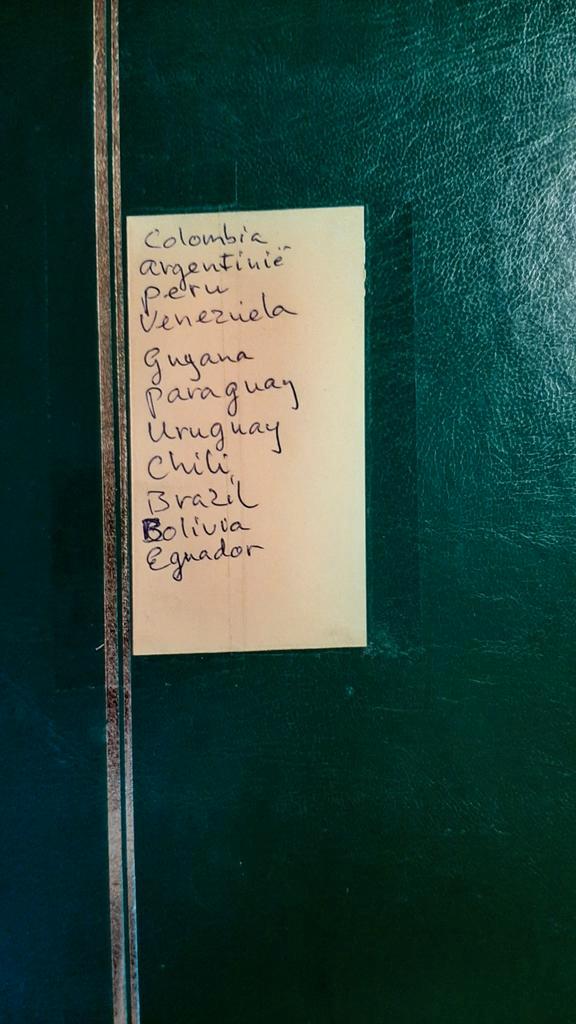 Colombia
argentinië
peru
Venezuela
Guyana
paraguay
Uruguay
Chili
Brazil
Bolivia
Equador